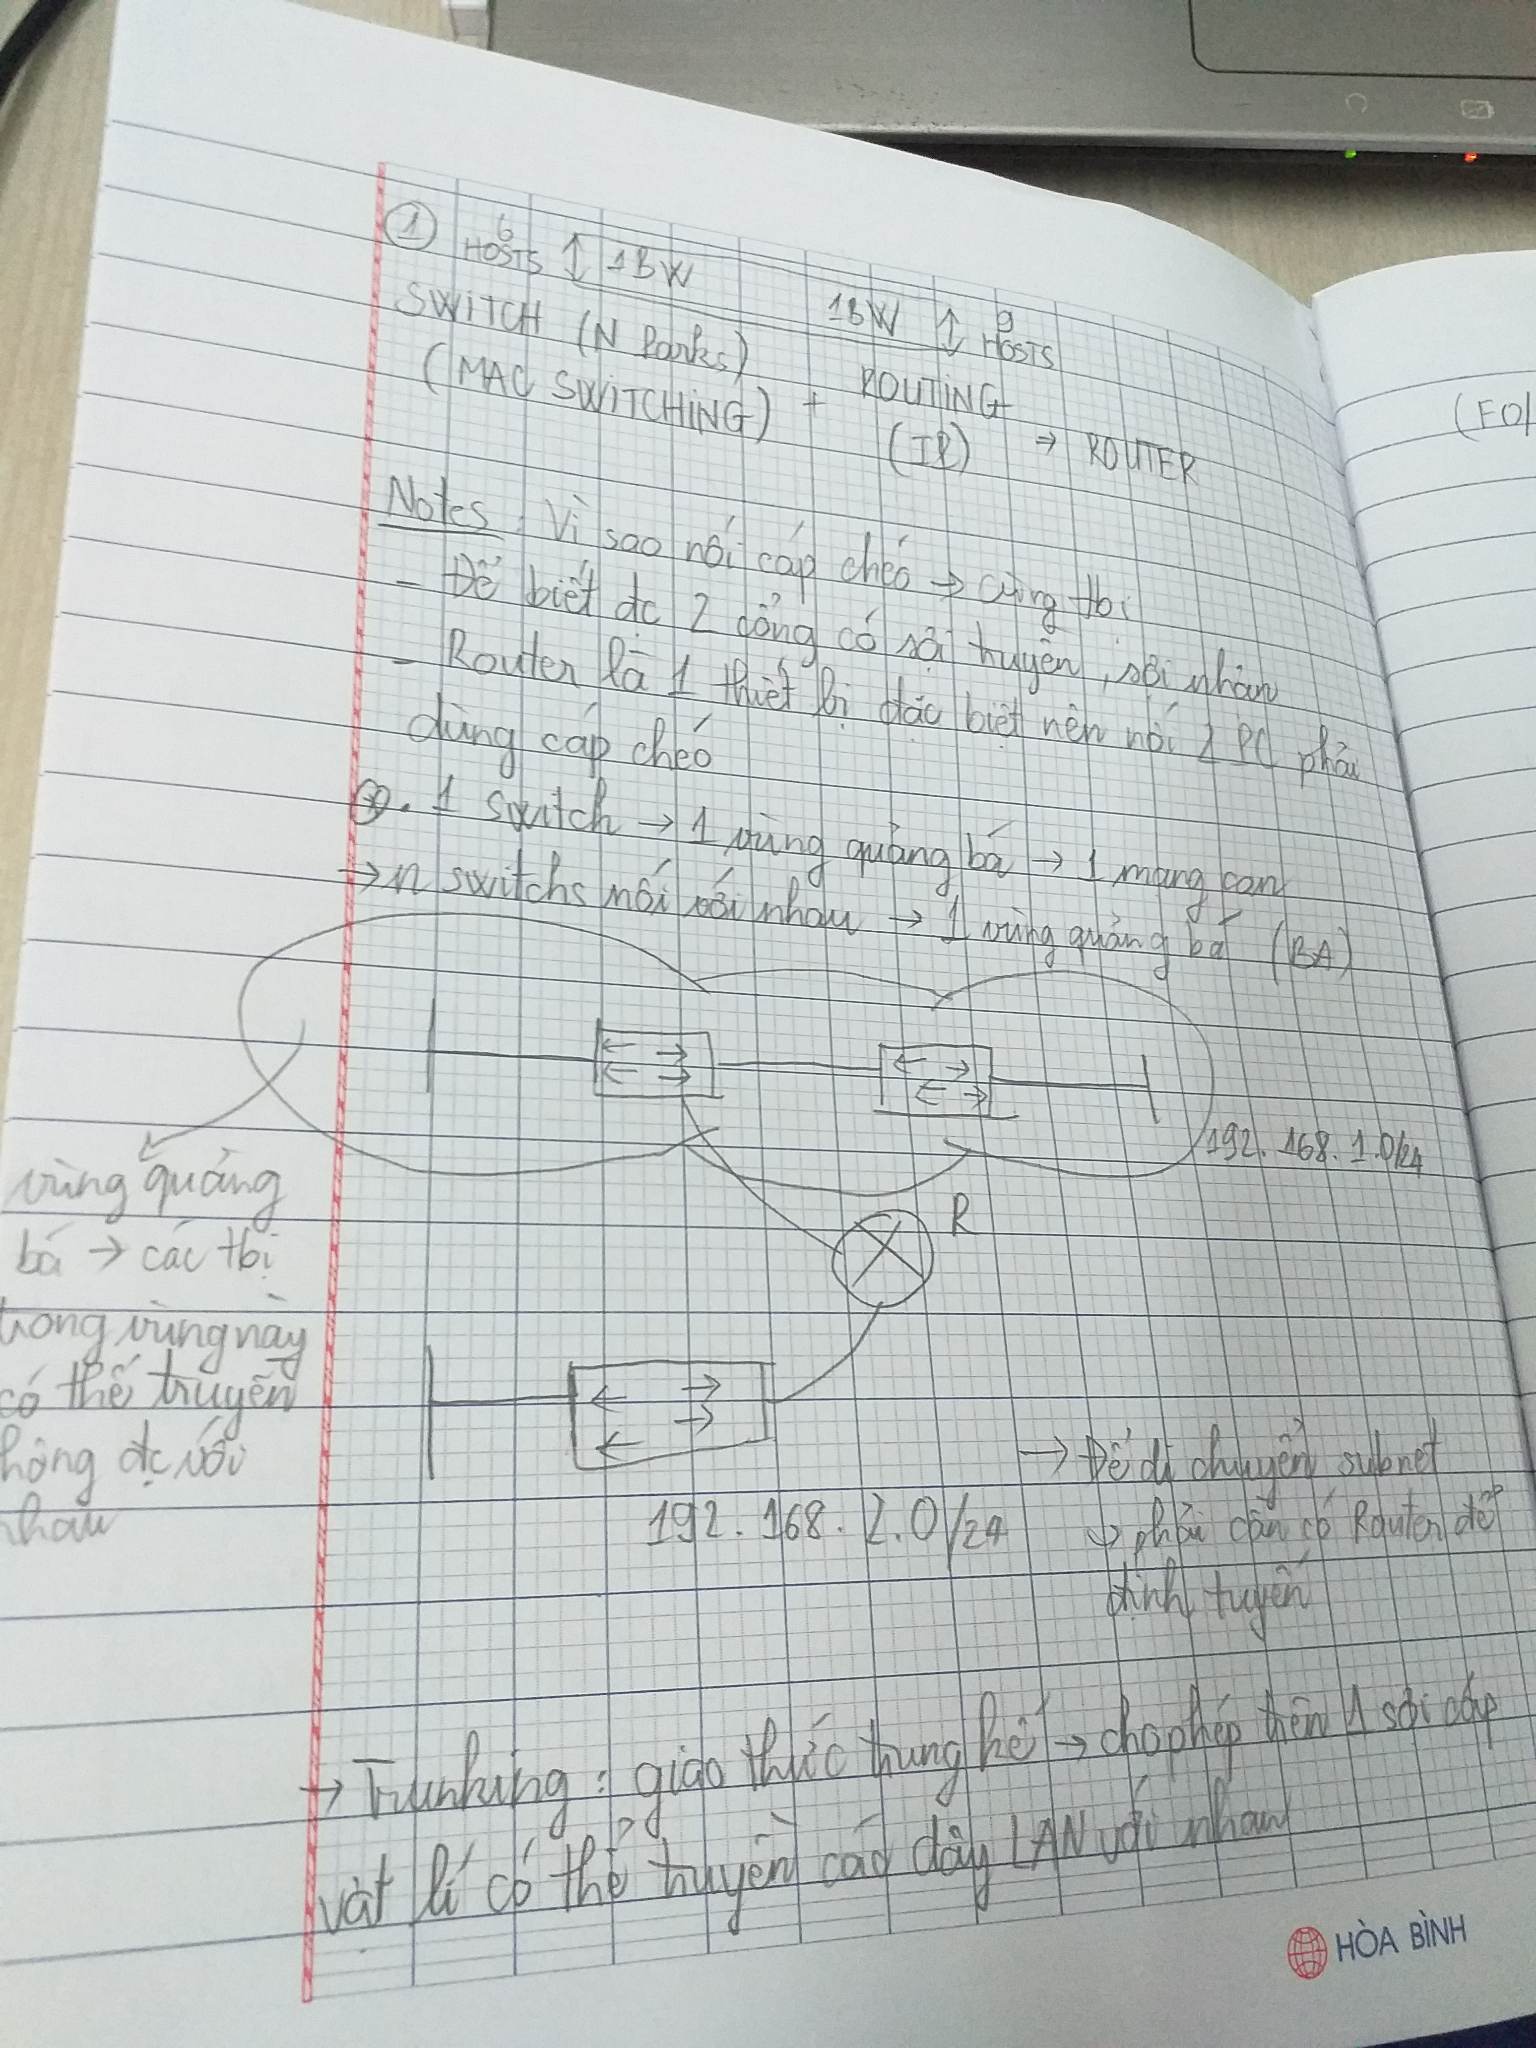 ① 6
HOSTS ↕ 1BW 1BW ↕ 9 HOSTS
SWITCH (N Ports) ROUTING
(MAC SWITCHING) + (IP) → ROUTER
Notes: Vì sao nối cáp chéo → cùng tbị
- Để biết đc 2 cổng có sợi truyền, sợi nhận
- Router là 1 thiết bị đặc biệt nên nối 2 PC phải
dùng cáp chéo
. 1 switch → 1 vùng quảng bá → 1 mạng con
→ n switchs nối với nhau → 1 vùng quảng bá (BA)
192.168.1.0/24
vùng quảng
bá → các tbị
trong vùng này
có thể truyền
thông đc với
nhau
R
192.168.2.0/24
→ Để di chuyển subnet
→ phải cần có Router để
định tuyến
→ Trunking: giao thức trung kế → cho phép trên 1 sợi cáp
vật lí có thể truyền các dây LAN với nhau
HÒA BÌNH